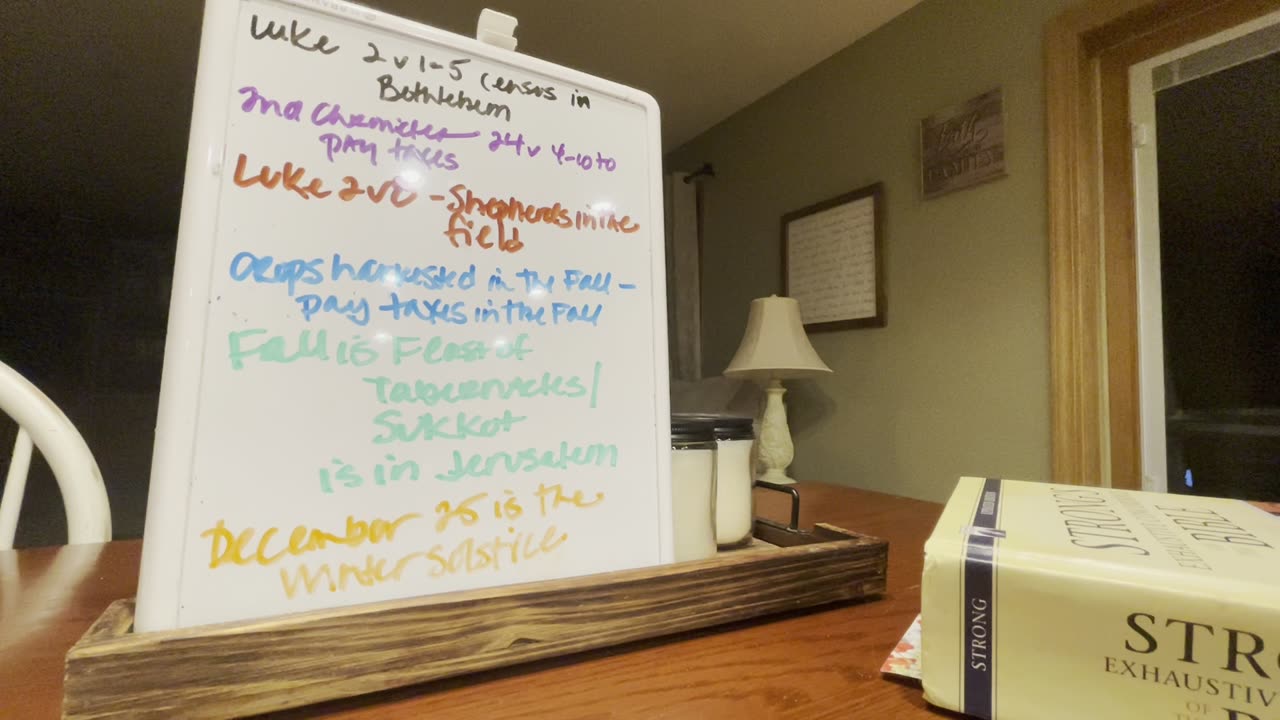 Luke 2 v 1-5 Census in
Bethlehem
2nd Chronicles 24 v 4-10 to
pay taxes
Luke 2 v 8 - Shepherds in the
field
Crops harvested in the Fall -
pay taxes in the Fall
Fall is Feast of
Tabernacles/
Sukkot
is in Jerusalem
December 25 is the
Winter Solstice
STRONG'S
BIBLE
STRONG
EXHAUSTIV
OF